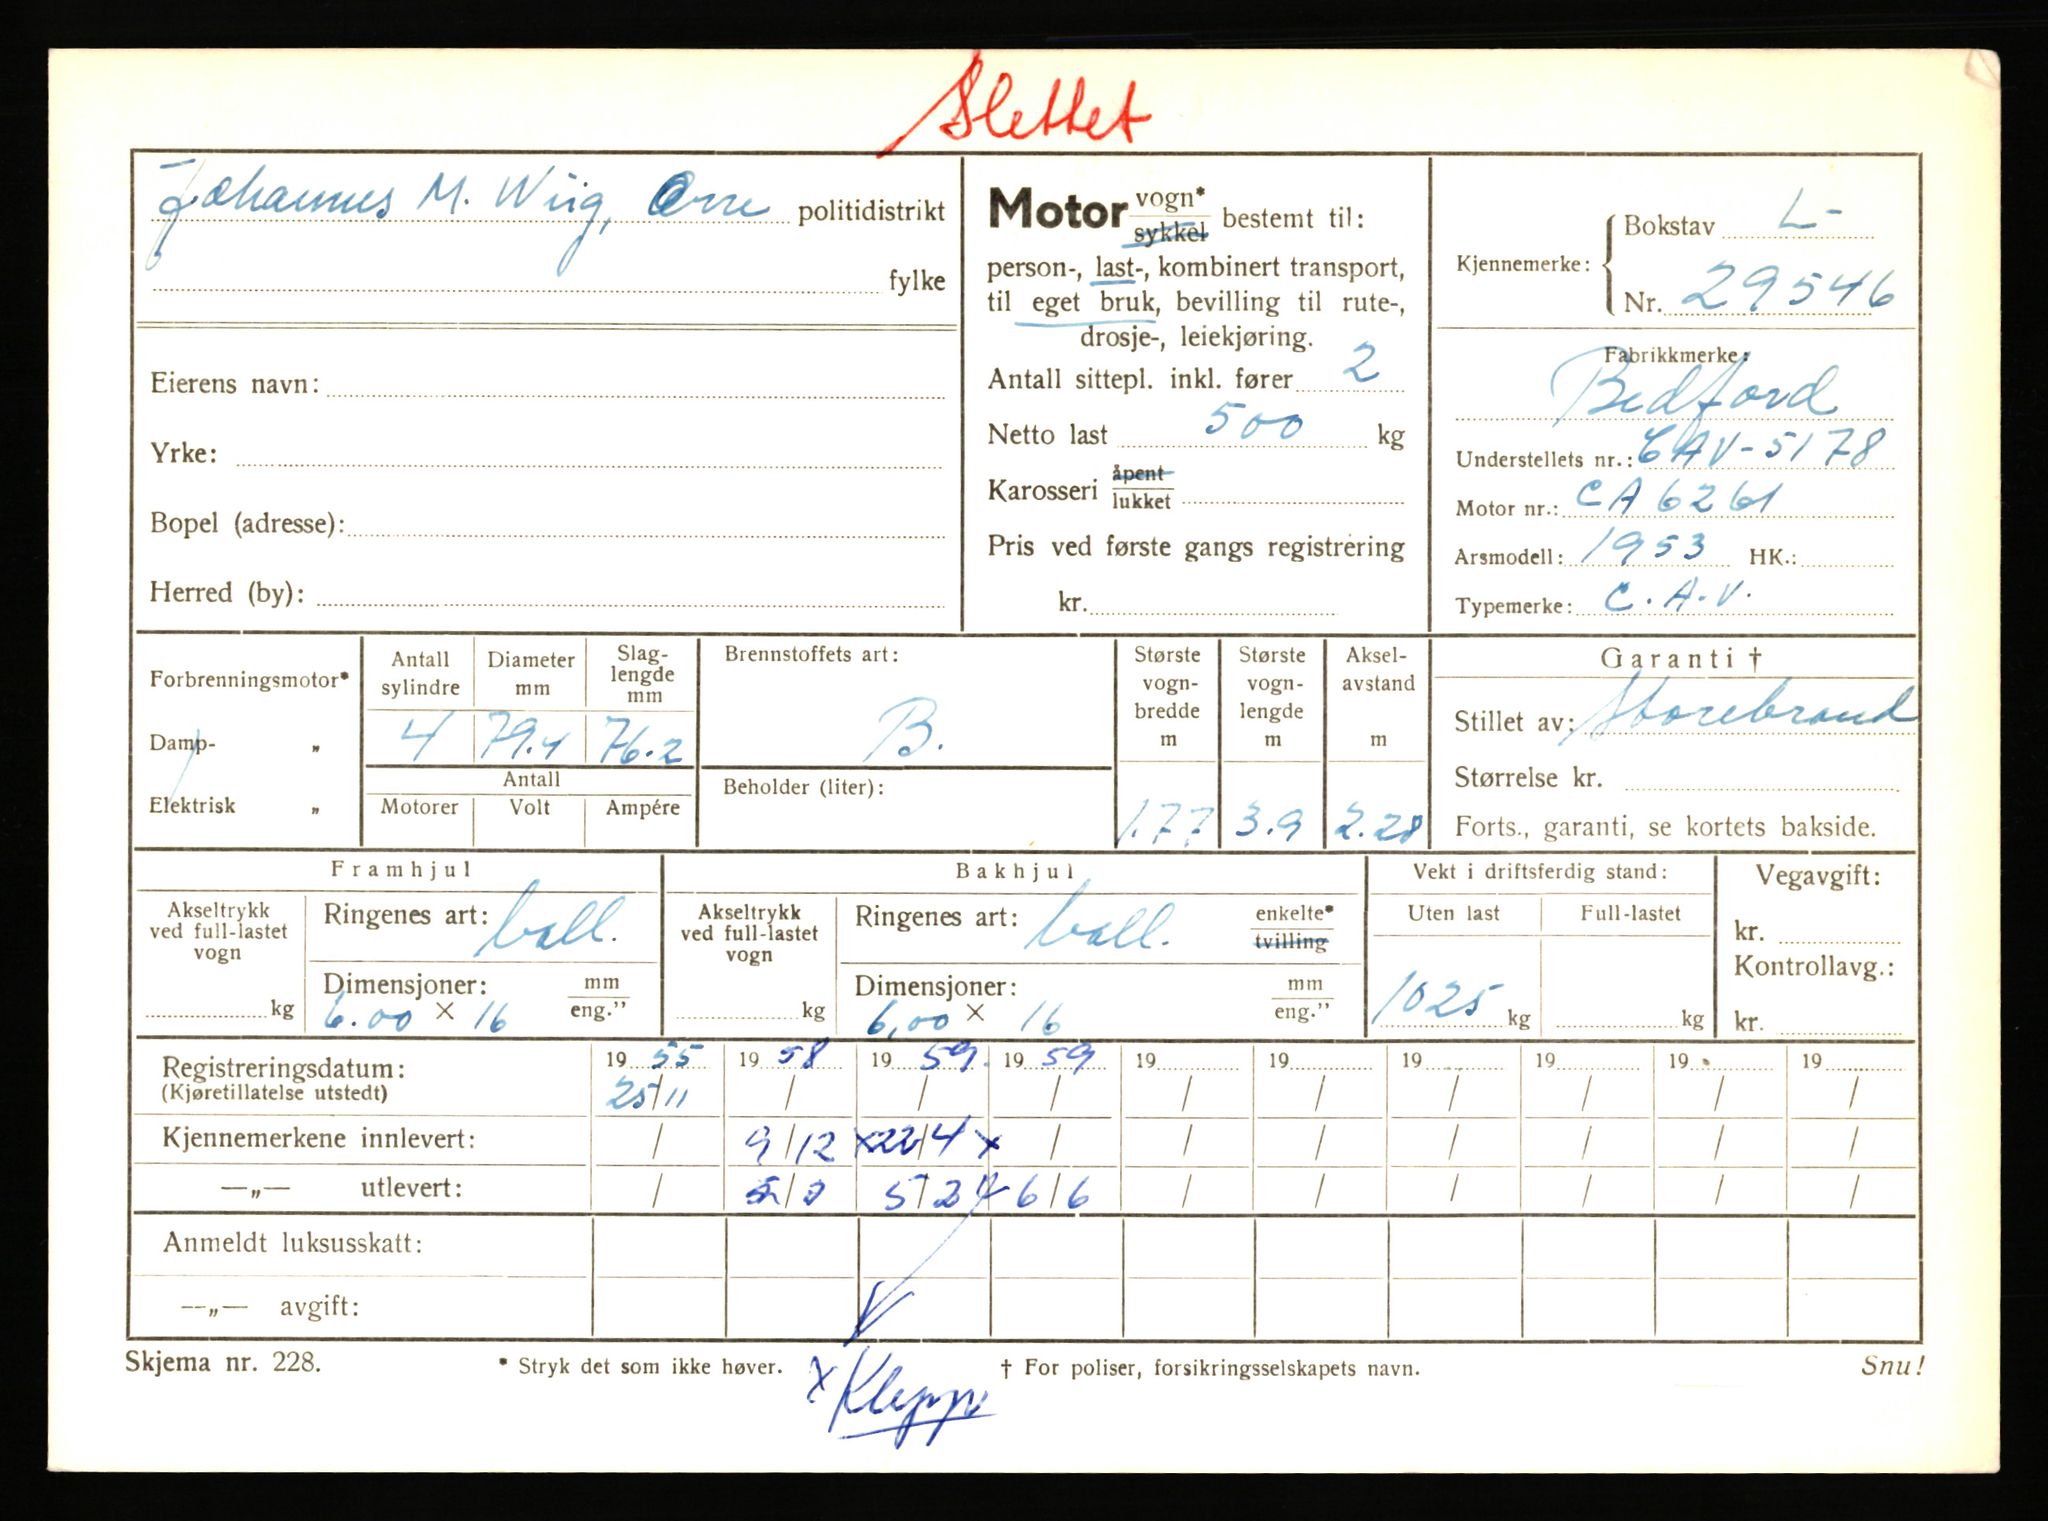 Slettet
Johannes M. Wiig, Orre politidistrikt
fylke
Eierens navn:
Yrke:
Bopel (adresse):
Herred (by):
Motor vogn* sykkel bestemt til:
person-, last-, kombinert transport,
til eget bruk, bevilling til rute-,
drosje-, leiekjøring.
Antall sittepl. inkl. fører 2
Netto last 500 kg
Karosseri åpent lukket
Pris ved første gangs registrering
kr.
Kjennemerke: Bokstav L-
Nr. 29546
Fabrikkmerke:
Bedford
Understellets nr.: CAV-5178
Motor nr.: CA6261
Arsmodell: 1953 HK.:
Typemerke: C.A.V.
Forbrenningsmotor*
Damp- „
Elektrisk „
Antall sylindre 4
Diameter mm 79.4
Slaglengde mm 76.2
Antall
Motorer Volt Ampére
Brennstoffets art:
B.
Beholder (liter):
Største vognbredde m 1.77
Største vognlengde m 3.9
Akselavstand m 2.28
Garanti †
Stillet av: Storebrand
Størrelse kr.
Forts., garanti, se kortets bakside.
Framhjul
Akseltrykk ved full-lastet vogn kg
Ringenes art: ball.
Dimensjoner: mm eng."
6.00 X 16
Bakhjul
Akseltrykk ved full-lastet vogn kg
Ringenes art: ball. enkelte* tvilling
Dimensjoner: mm eng."
6,00 X 16
Vekt i driftsferdig stand:
Uten last Full-lastet
1025 kg kg
Vegavgift:
kr.
Kontrollavg.:
kr.
Registreringsdatum: 19 55 19 58 19 59 19 59 19 19 19 19 19 19
(Kjøretillatelse utstedt) 25/11 / / / / / / / / /
Kjennemerkene innlevert: / 9/12 x 22/4 x / / / / / / /
—„— utlevert: / 5/2 6/6 / / / / / /
Anmeldt luksusskatt:
—„— avgift:
Skjema nr. 228. * Stryk det som ikke høver. † For poliser, forsikringsselskapets navn. Snu!
x Klepp